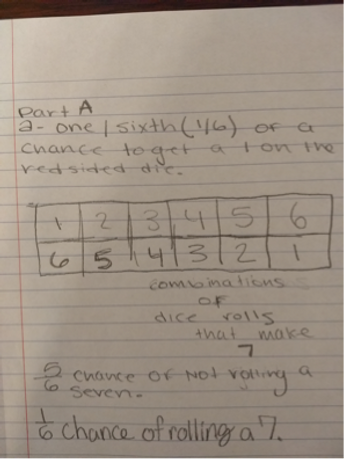 Part A
a- one/sixth (1/6) of a
chance to get a 1 on the
red sided die.
1 2 3 4 5 6
6 5 4 3 2 1
combinations
of
dice rolls
that make
7
5/6 chance of NOT rolling a
seven.
1/6 chance of rolling a 7.